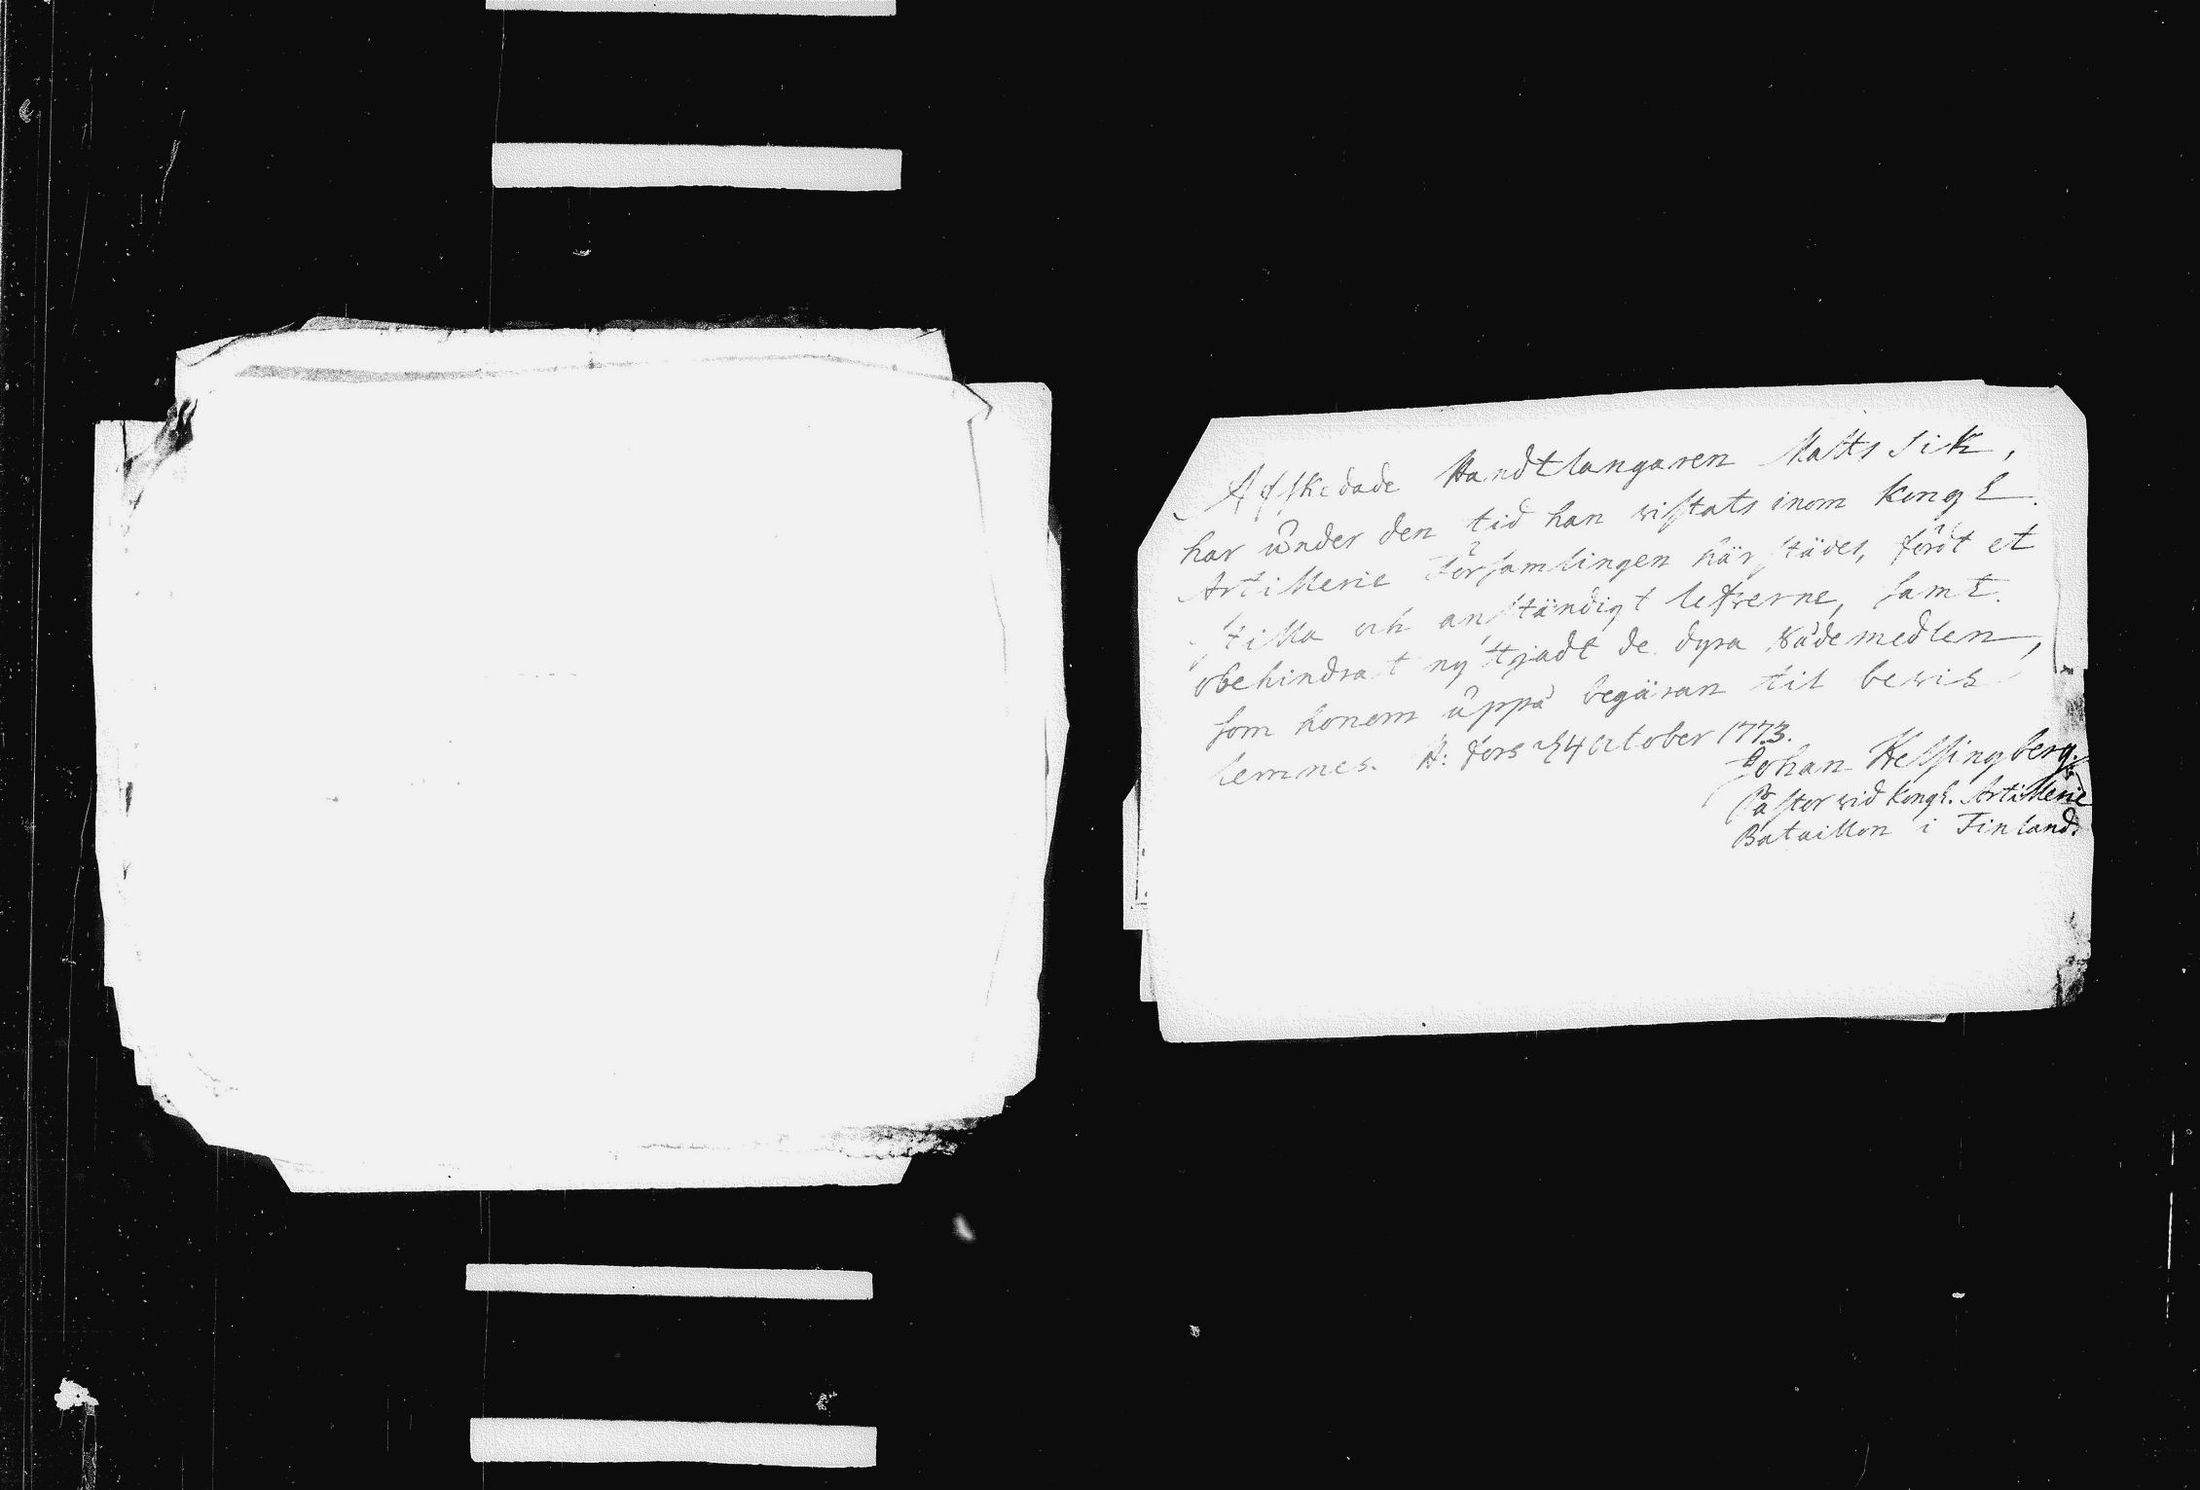 Afskedade Handtlangaren Matts Sik,
har under den tid han wistats inom Kongl.
Artillerie Församlingen härstädes, fördt et
stilla och anständigt lefwerne, samt
obehindrat nyttjadt de dyra Nådemedlen,
som honom uppå begäran til bewis
lemnes. H:fors d 4 October 1773.
Johan Helsingberg.
Pastor wid Kongl. Artillerie
Bataillon i Finland.